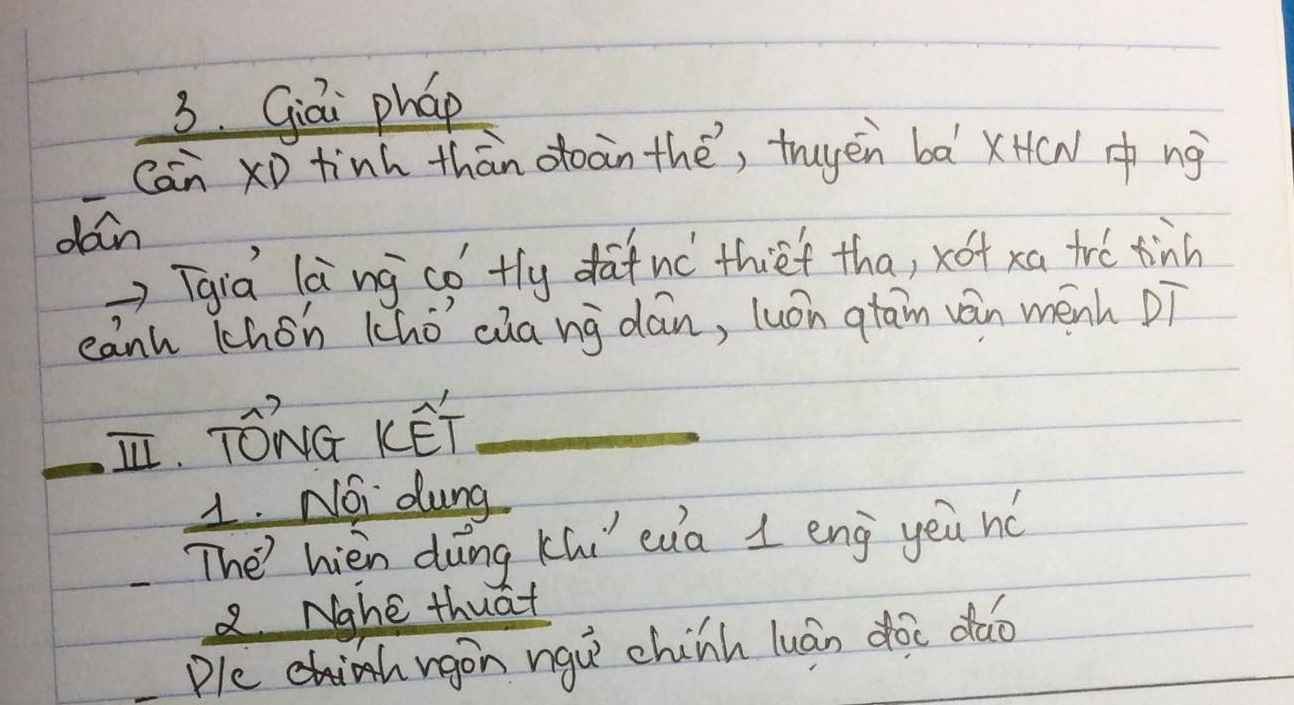 3. Giải pháp
_ Cần XD tinh thần đoàn thể, truyền bá XHCN ng
dân
→ Tgiả là ng có tly đất nc thiết tha, xót xa trc tình
cảnh khốn khổ của ng dân, luôn qtâm vận mệnh DT
III. TỔNG KẾT
1. Nội dung
_ Thể hiện dũng khí của 1 yêu nc
2. Nghệ thuật
_ P/c ngôn ngữ chính luận độc đáo